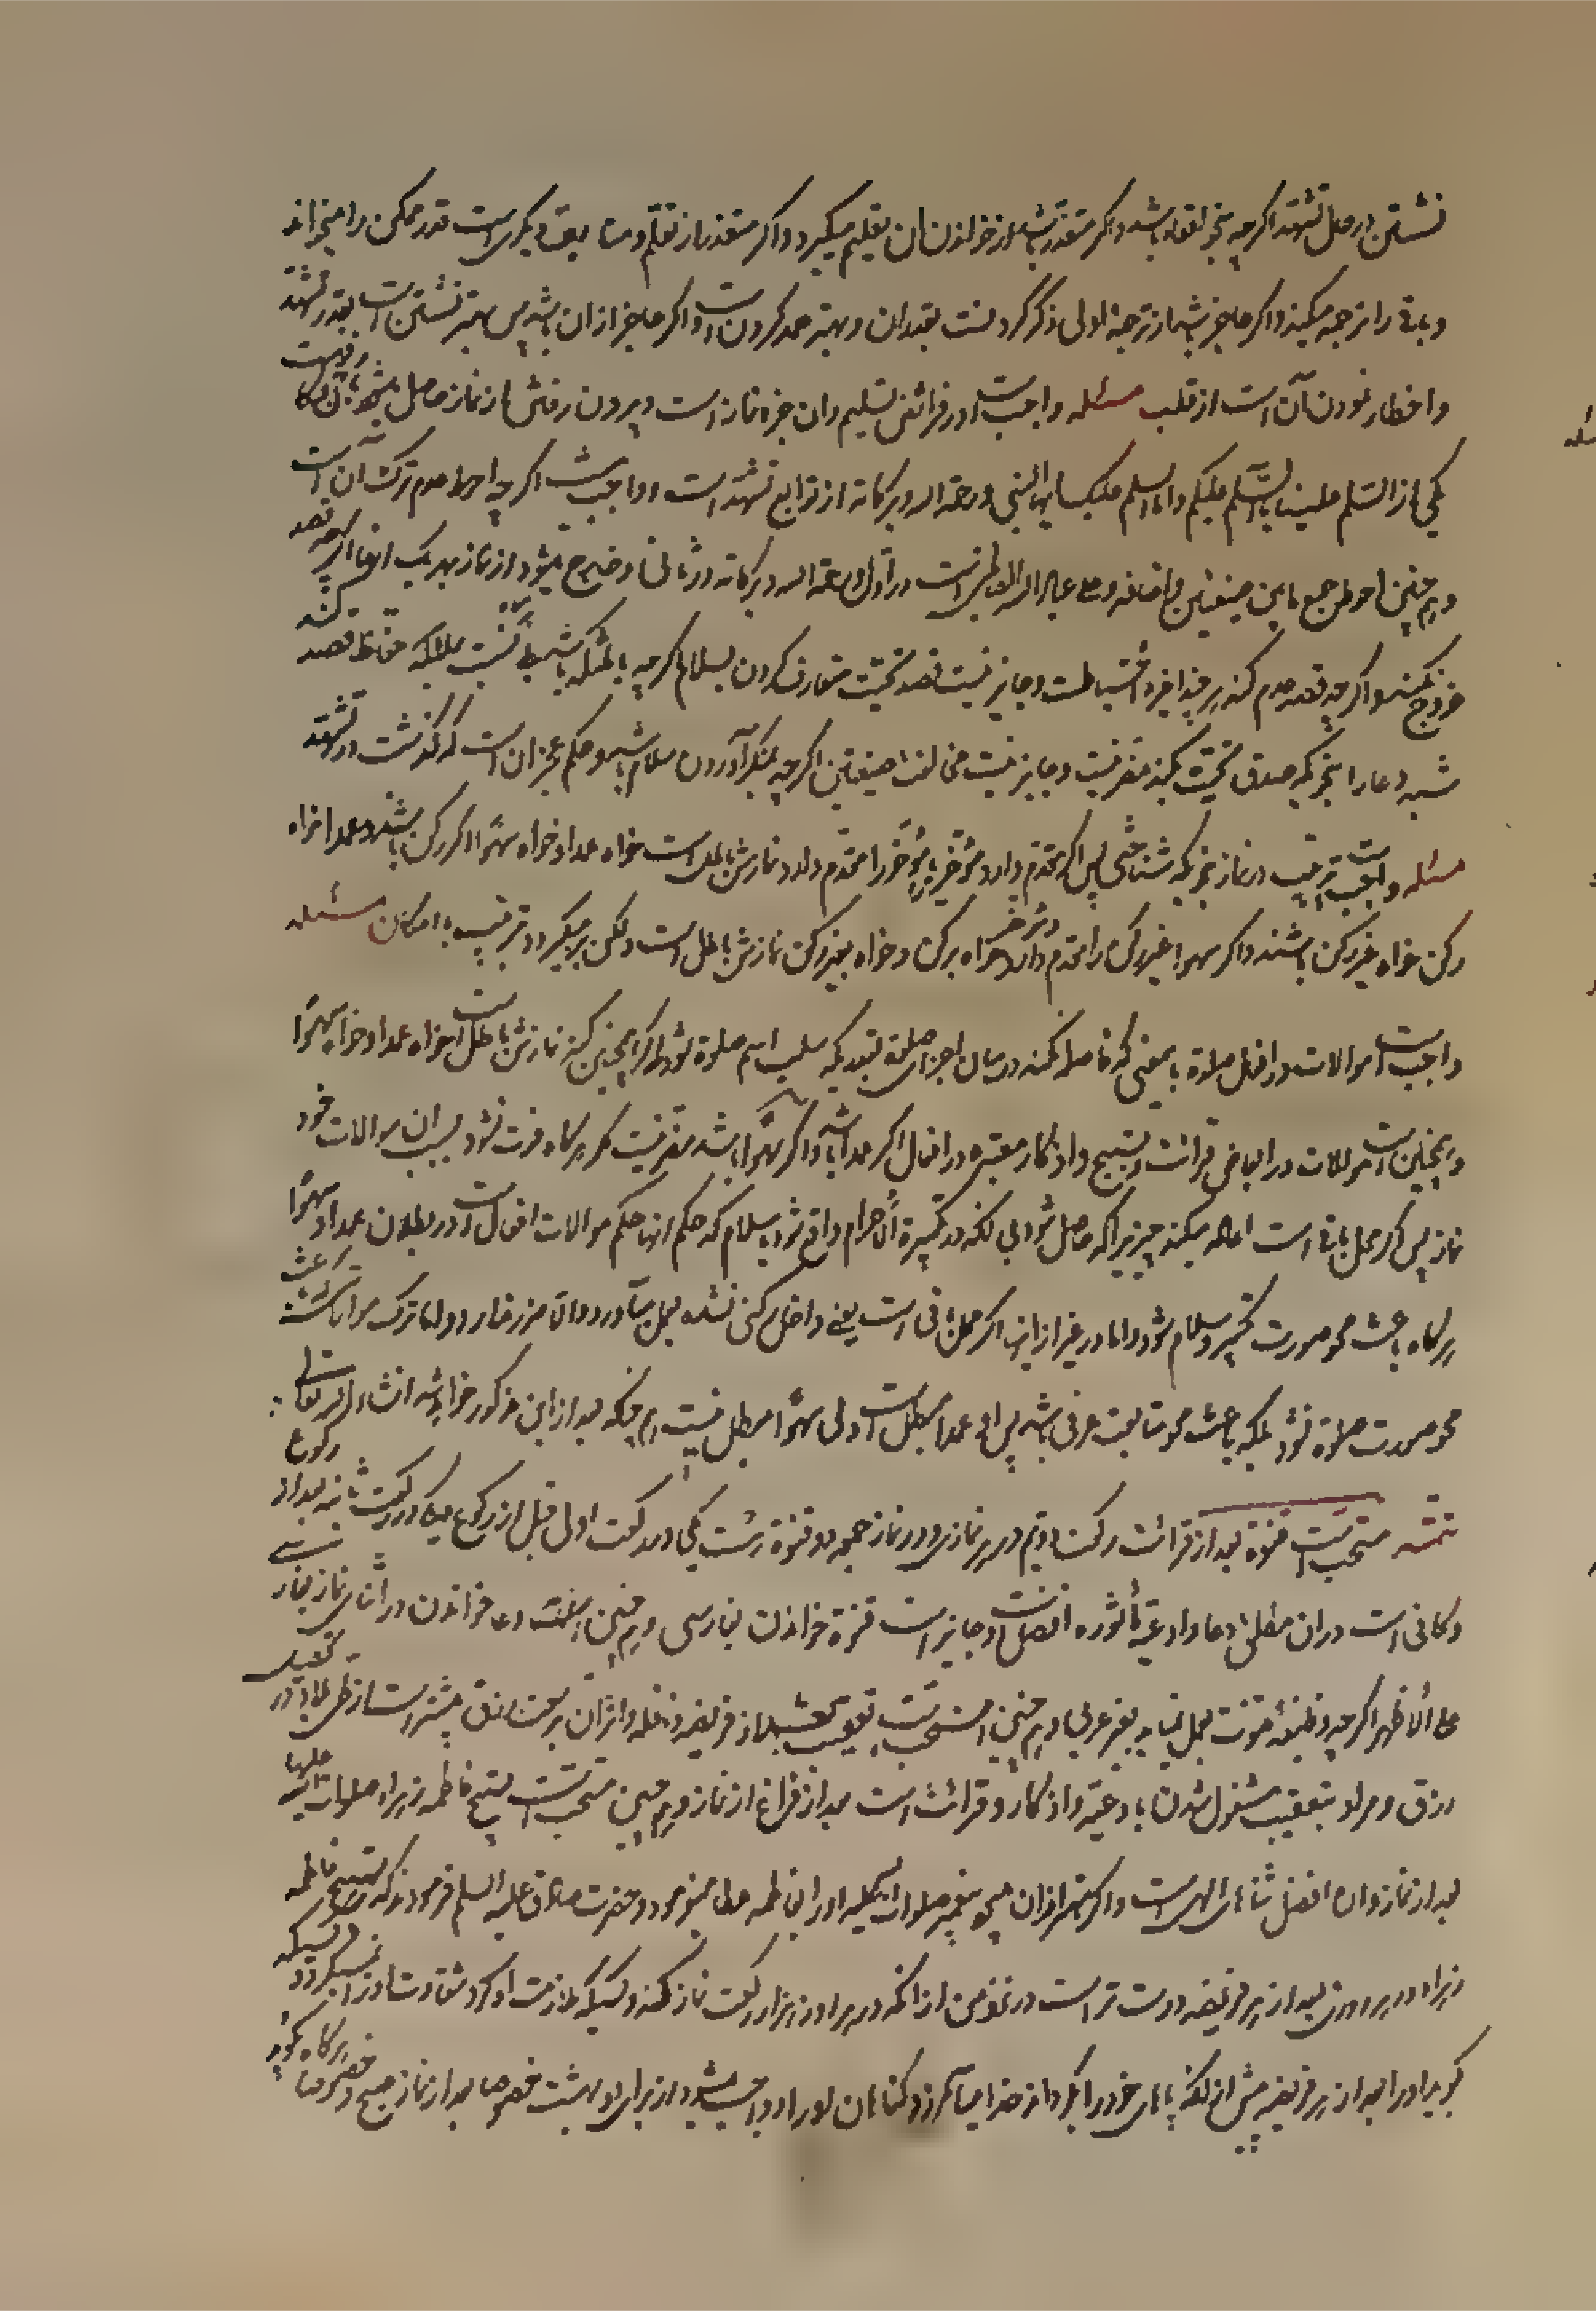 نشستن در محل تشهد اگر چه بنحو اقعاء باشد و اگر متعذر باشد از خواندن ان تعلیم میگیرد و اگر متعذر باز تعلم و متابعت دیگری است قدر ممکن را میخواند
و باقی را ترجمه میکند و اگر عاجز باشد از ترجمه اولی ذکر کردنست بقدر ان و بهتر حمد کردن است و اگر عاجز از ان باشد پس بهتر نشستن است بقدر تشهد
و اخطار نمودن آن است از قلب مسئله واجب است در فرائض تسلیم و ان جزء نماز است و بیرون رفتن از نماز حاصل میشود بان
یکی از السلام علینا یا السلام علیکم و اما السلام علیک ایها النبی و رحمة الله و برکاته از توابع تشهد است و واجب نیست اگر چه احوط عدم ترک آن است
و هم چنین احوط جمع مابین صیغتین و اضافه و علی عباد الله الصالحین است در اول و رحمة الله و برکاته در ثانی و خروج میشود از نماز بهر یک از انها اگر چه قصد
خروج نکند و اگر چه قصد عدم کند هر چند اخیر احتیاط است و جایز نیست قصد تحیت متعارف کردن بسلام اگر چه باشد بلکه قصد
شبه دعا را بنحویکه صدق تحیت نکند مضر نیست و جایز نیست مخالفت صیغتین اگر چه بمنکر آوردن سلام باشد و حکم عجز ان است که گذشت در تشهد
مسئله واجب است ترتیب در نماز بنحویکه شناختی پس اگر مقدم دارد مؤخر یا مؤخر را مقدم دارد نمازش باطل است خواه عمدا و خواه سهوا اگر رکن باشد و عمدا خواه
رکن خواه غیر رکن باشند و اگر سهوا غیر رکن را مقدم دارد خواه برکن و خواه بغیر رکن نمازش باطل است ولکن بر میگردد بترتیب با امکان مسئله
واجب است موالات در افعال صلاة بمعنی که فاصله نکند در میان اجزای صلوة بقدریکه سلب اسم صلوة شود و اگر اینچنین کند نمازش باطل است خواه عمدا و خواه سهوا
و همچنین است موالات در ابعاض قرائت و تسبیح و اذکار معتبره در افعال اگر عمدا باشد و اگر سهوا باشد مضر نیست مگر هر گاه فوت شود بسبب ان موالات خود
نماز پس اگر محل باقی است اعاده میکند چیزی را که حاصل شود بلی انکه در تکبیرة الاحرام واقع شود یا سلام که حکم انها حکم موالات افعال است در بطلان عمدا و سهوا
هر گاه باعث محو صورت تکبیر و سلام شود و اما در غیر از انها اگر محل باقی است یعنی داخل رکنی نشده بعمل میآورد و الا ضرر ندارد و اما ترک موالاتی که باعث
محو صورت صلاة نشود بلکه باعث محو متابعت عرفی باشد پس ان عمدا مبطل است ولی سهوا مبطل نیست هم چنانکه بعد از این مذکور خواهد شد انشاء الله تعالی
تتمه مستحب است قنوت بعد از قرائت رکعت دویم در هر نمازی و در نماز جمعه دو قنوت است یکی در رکعت اولی قبل از رکوع و یکی در رکعت ثانیه بعد از رکوع
و کافی است در ان مطلق دعا و ادعیه مأثوره افضل است و جایز است قنوت خواندن بفارسی و هم چنین است دعا خواندن در اثنای نماز بفارسی
علی الاظهر اگر چه وظیفه قنوت بعمل نیاید بغیر عربی و هم چنین مستحب است تعقیب بعد از فریضه و نافله و اثر ان بوسعت رزق بیشتر است از طی بلاد در تحصیل
رزق و مراد بتعقیب مشغول شدن بادعیه و اذکار و قرائت است بعد از فراغ از نماز و هم چنین مستحب است تسبیح فاطمه زهراء صلوات الله علیها
بعد از نماز و ان افضل ثناهای الهی است و اگر بهتر از ان میبود پیغمبر صلوات الله علیه او را بفاطمه عطا مینمود و حضرت صادق علیه السلم فرمودند که تسبیح فاطمه
زهراء در هر روزی بعد از هر فریضه دوست تر است در نزد من از انکه در هر روز هزار رکعت نماز کنند و کسیکه ملازمت او کرد شقاوت از او دور میگردد و کسیکه
گوید او را بعد از هر فریضه پیش از انکه پاهای خود را بگرداند خدا میآمرزد گناهان او را و واجب میشود از برای او بهشت خصوصا بعد از نماز صبح و خصوصا هر گاه گوید